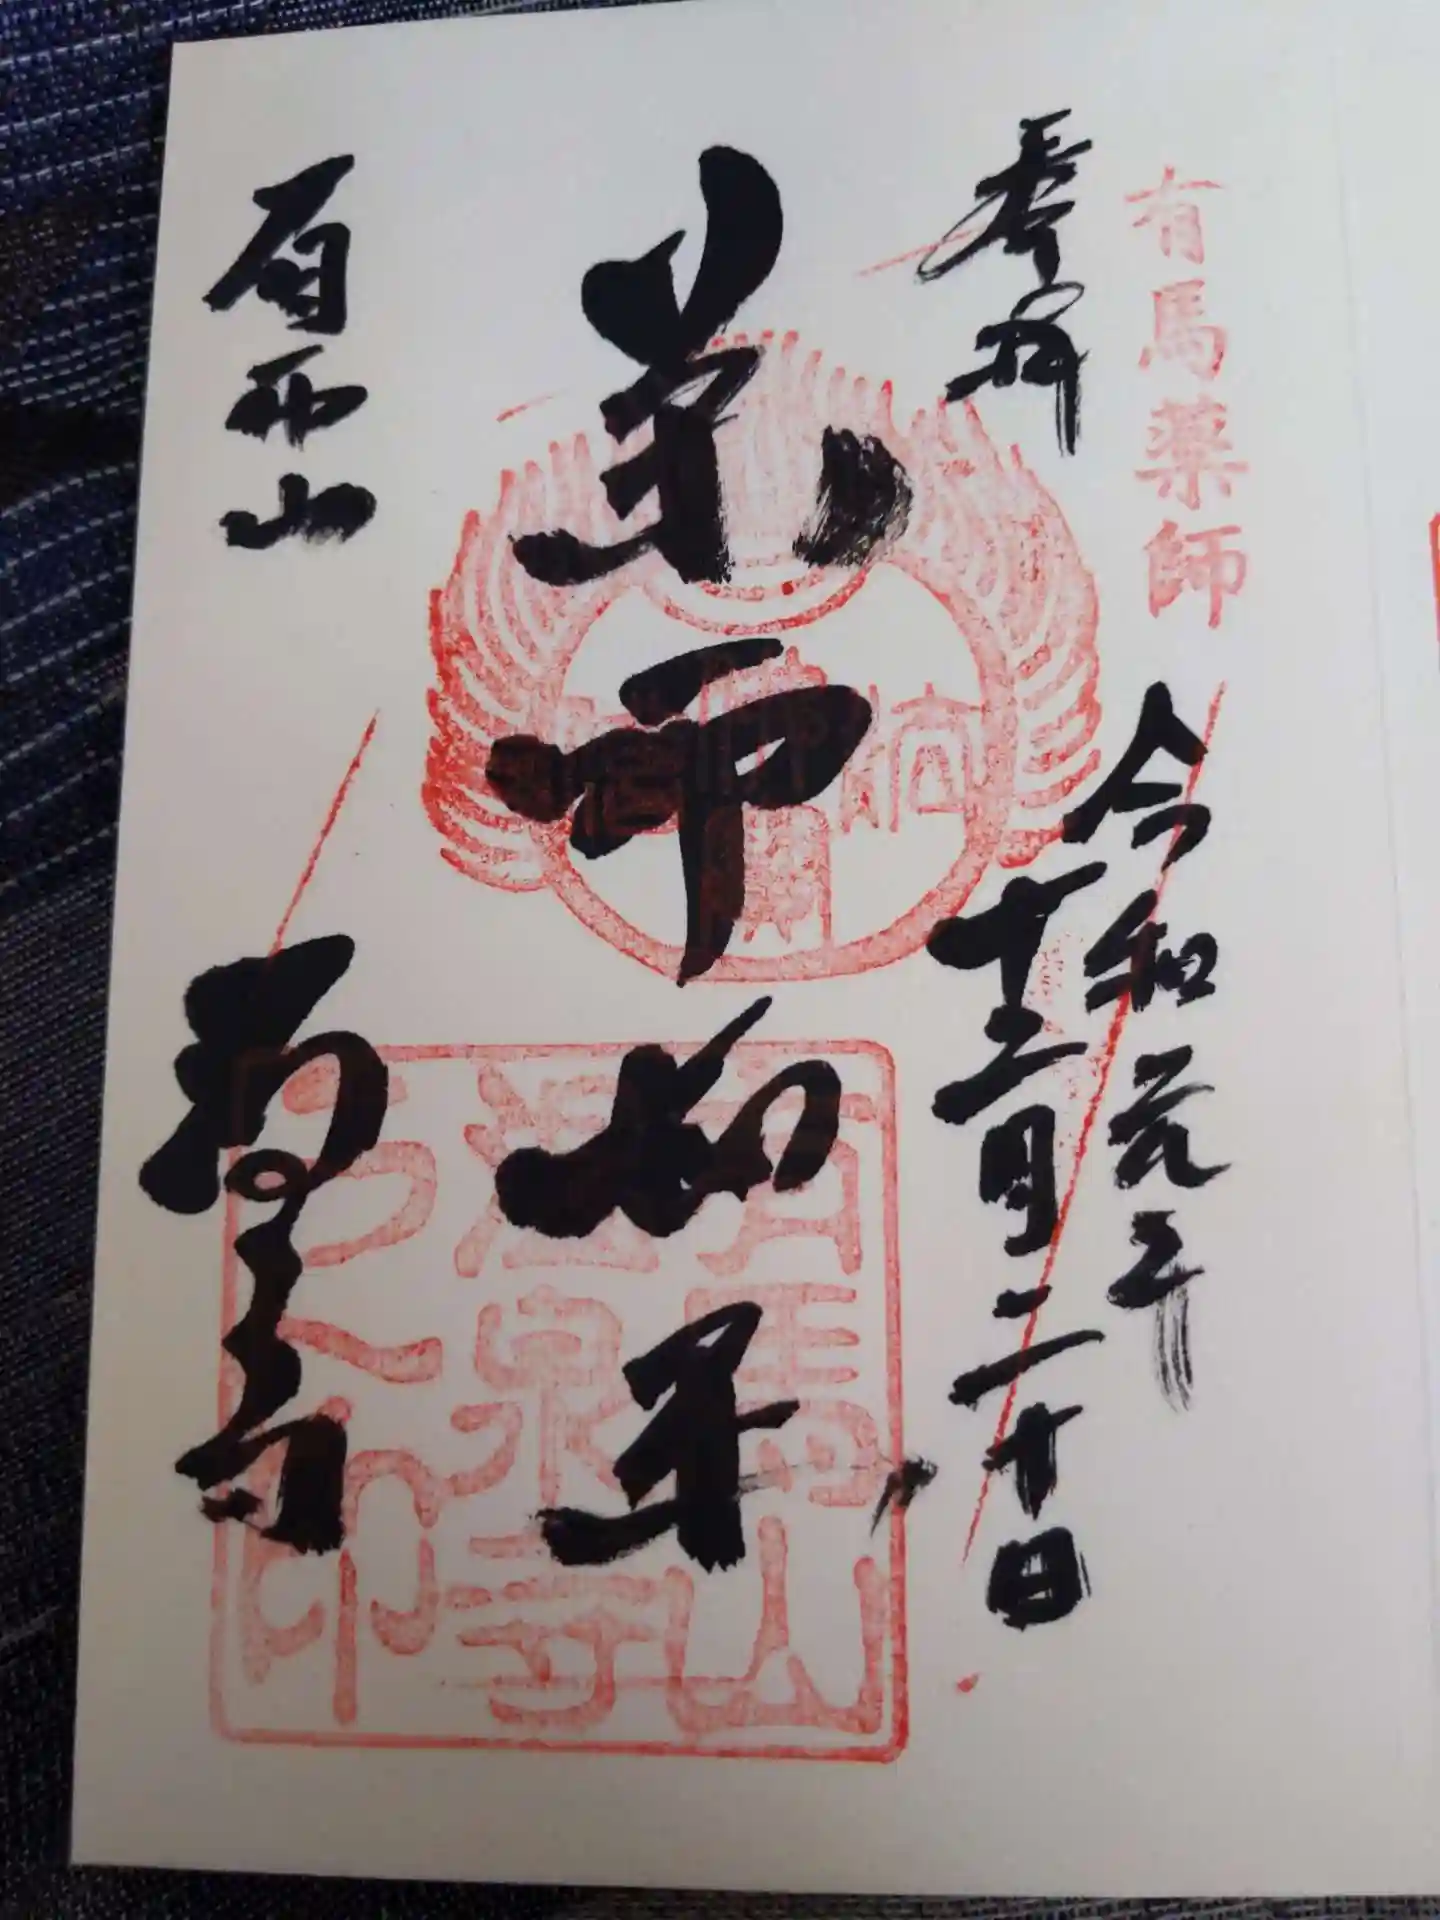 有馬薬師
奉拝
令和元年
十二月二十日
薬師如来
有馬山
温泉寺
有馬山
温泉寺
之印